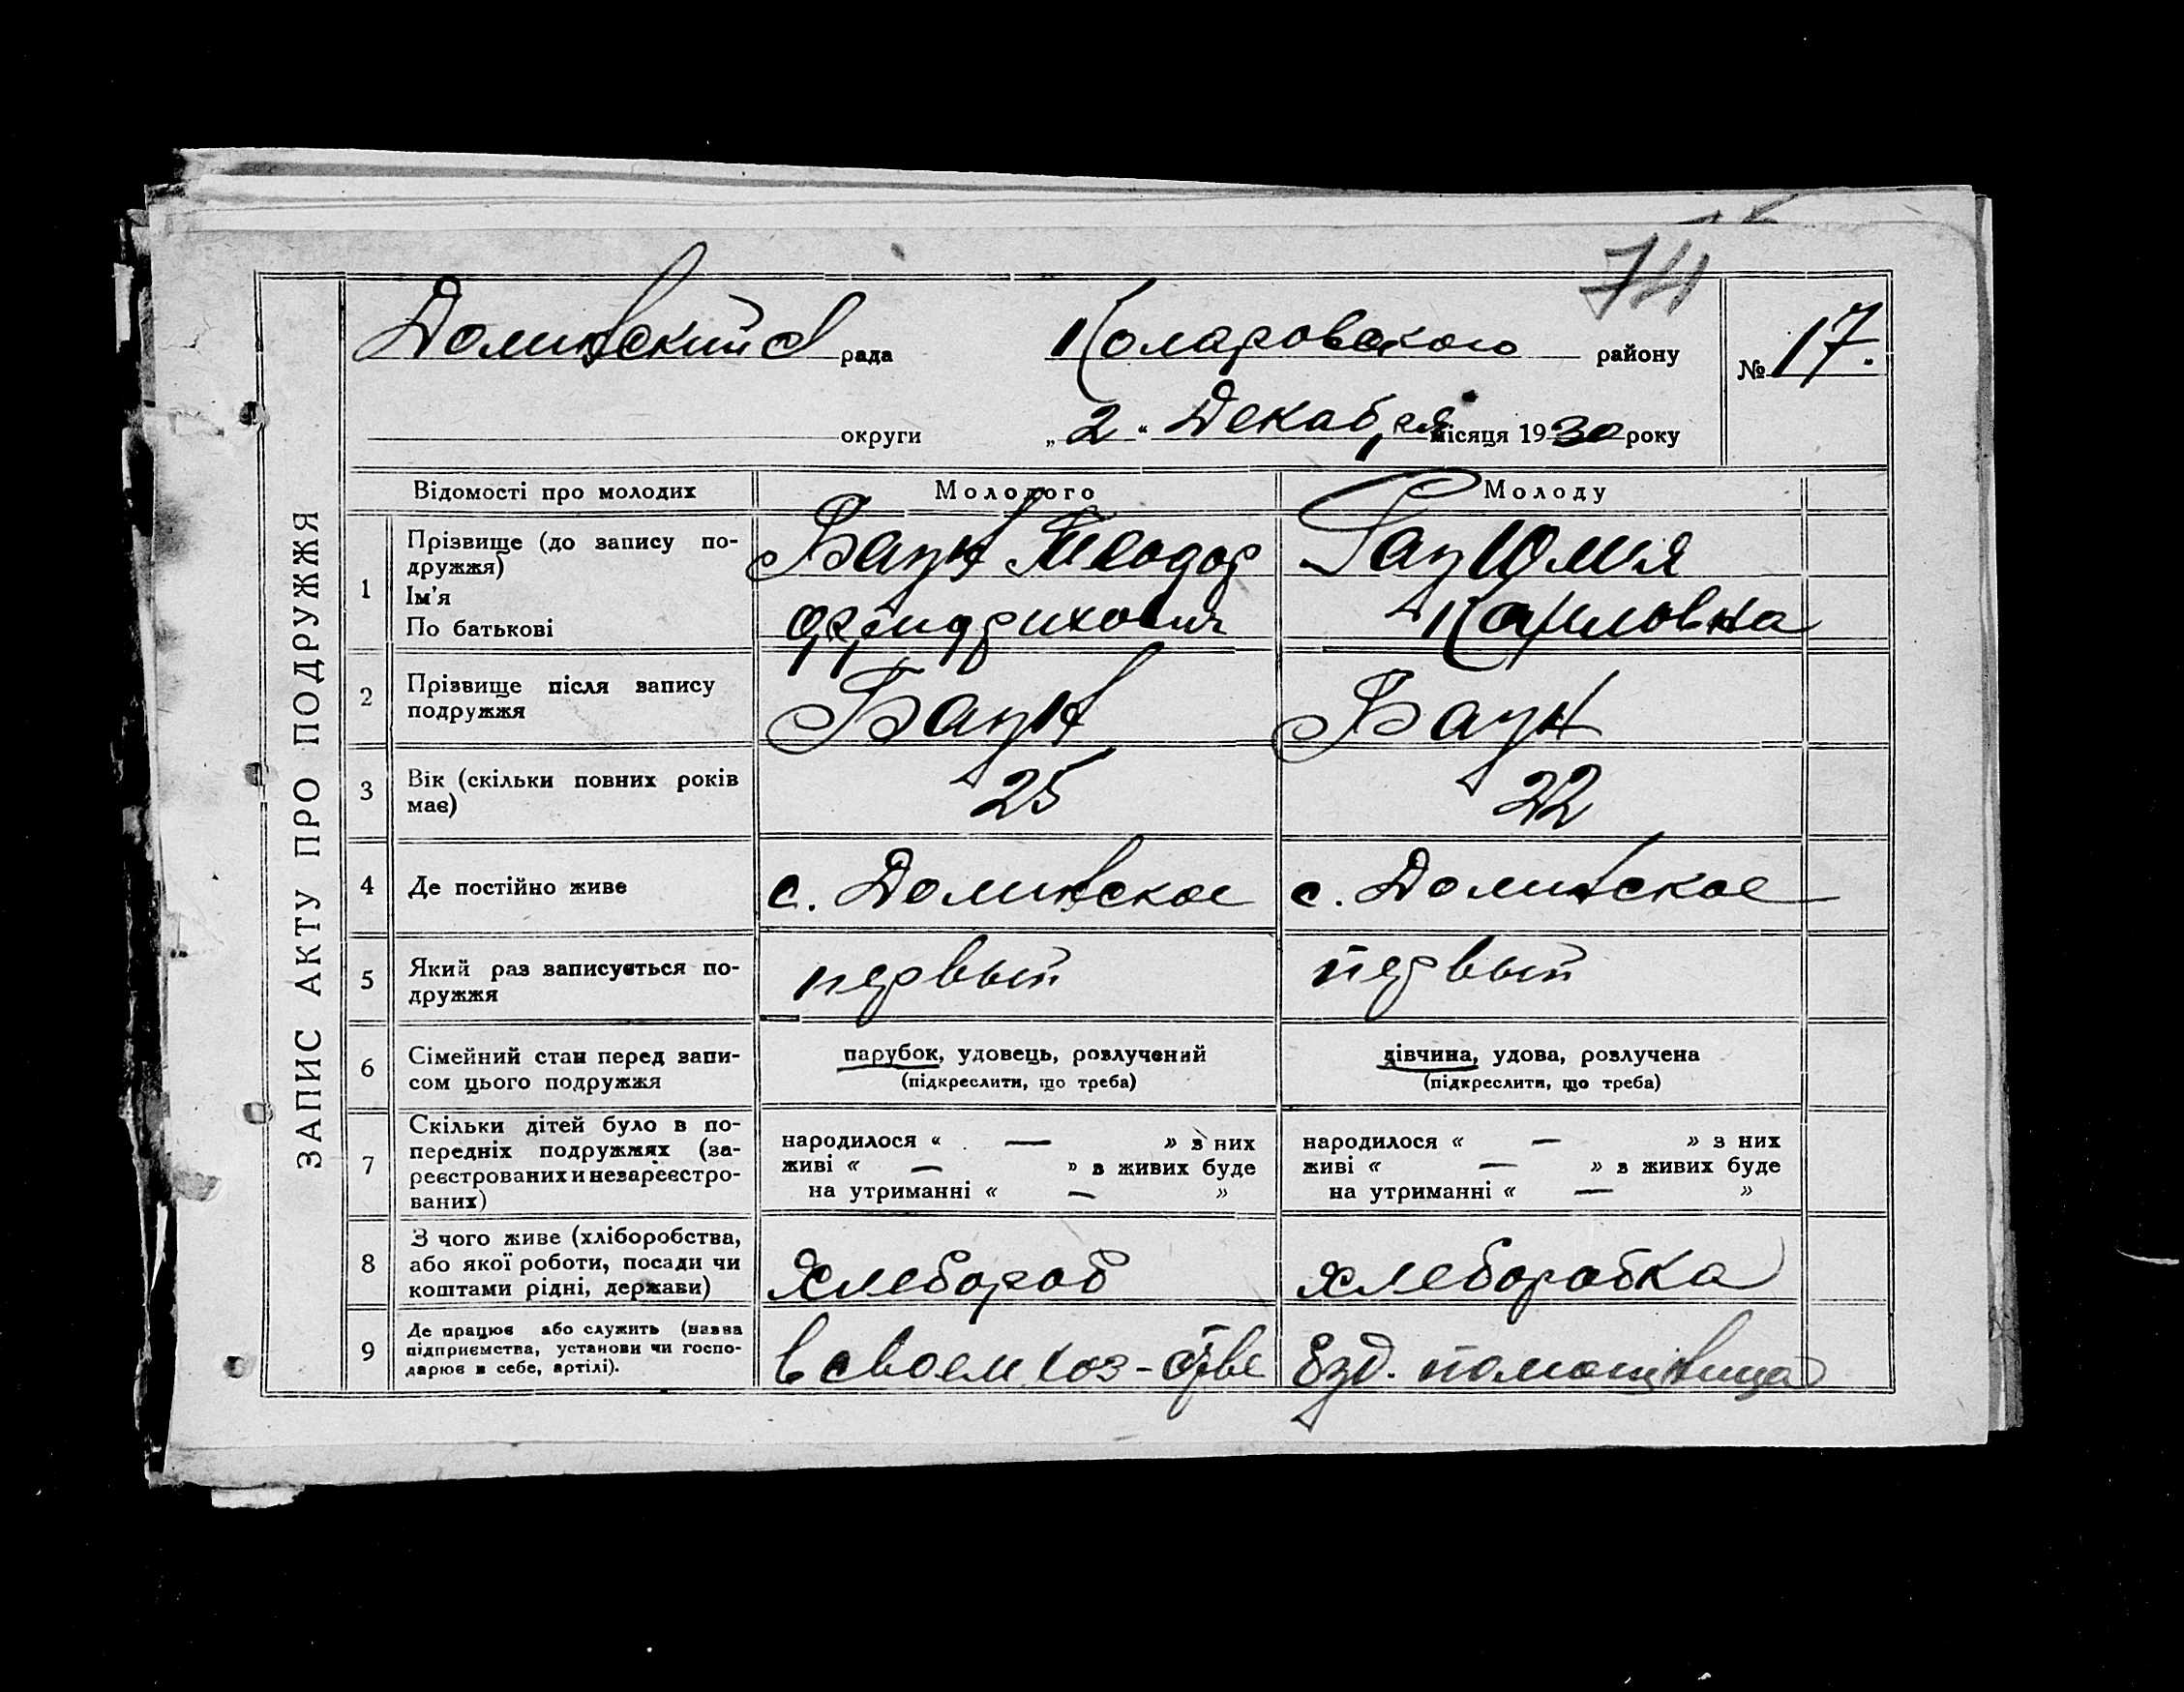 74
Долинский с рада Коларовского району № 17.
округи „2“ Декабря місяця 1930 року
ЗАПИС АКТУ ПРО ПОДРУЖЖЯ
Відомості про молодих Молодого Молоду
1 Прізвище (до запису подружжя) Баун Теодор Гац Юлия
Ім'я
По батькові Фридрихович Карловна
2 Прізвище після запису подружжя Баун Баун
3 Вік (скільки повних років має) 25 22
4 Де постійно живе с. Долинское с. Долинское
5 Який раз записується подружжя первый первый
6 Сімейний стан перед записом цього подружжя парубок, удовець, розлучений дівчина, удова, розлучена
(підкреслити, що треба) (підкреслити, що треба)
7 Скільки дітей було в попередніх подружжях (зареєстрованих и незареєстрованих)
народилося « — » з них народилося « — » з них
живі « — » з живих буде живі « — » з живих буде
на утриманні « — » на утриманні « — »
8 З чого живе (хліборобства, або якої роботи, посади чи коштами рідні, держави) хлебороб хлеборобка
9 Де працює або служить (назва підприємства, установи чи господарює в себе, артілі). в своем хоз-стве помощница